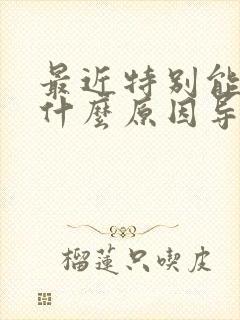 最近特别能
什麼原因导
榴蓮只喫皮